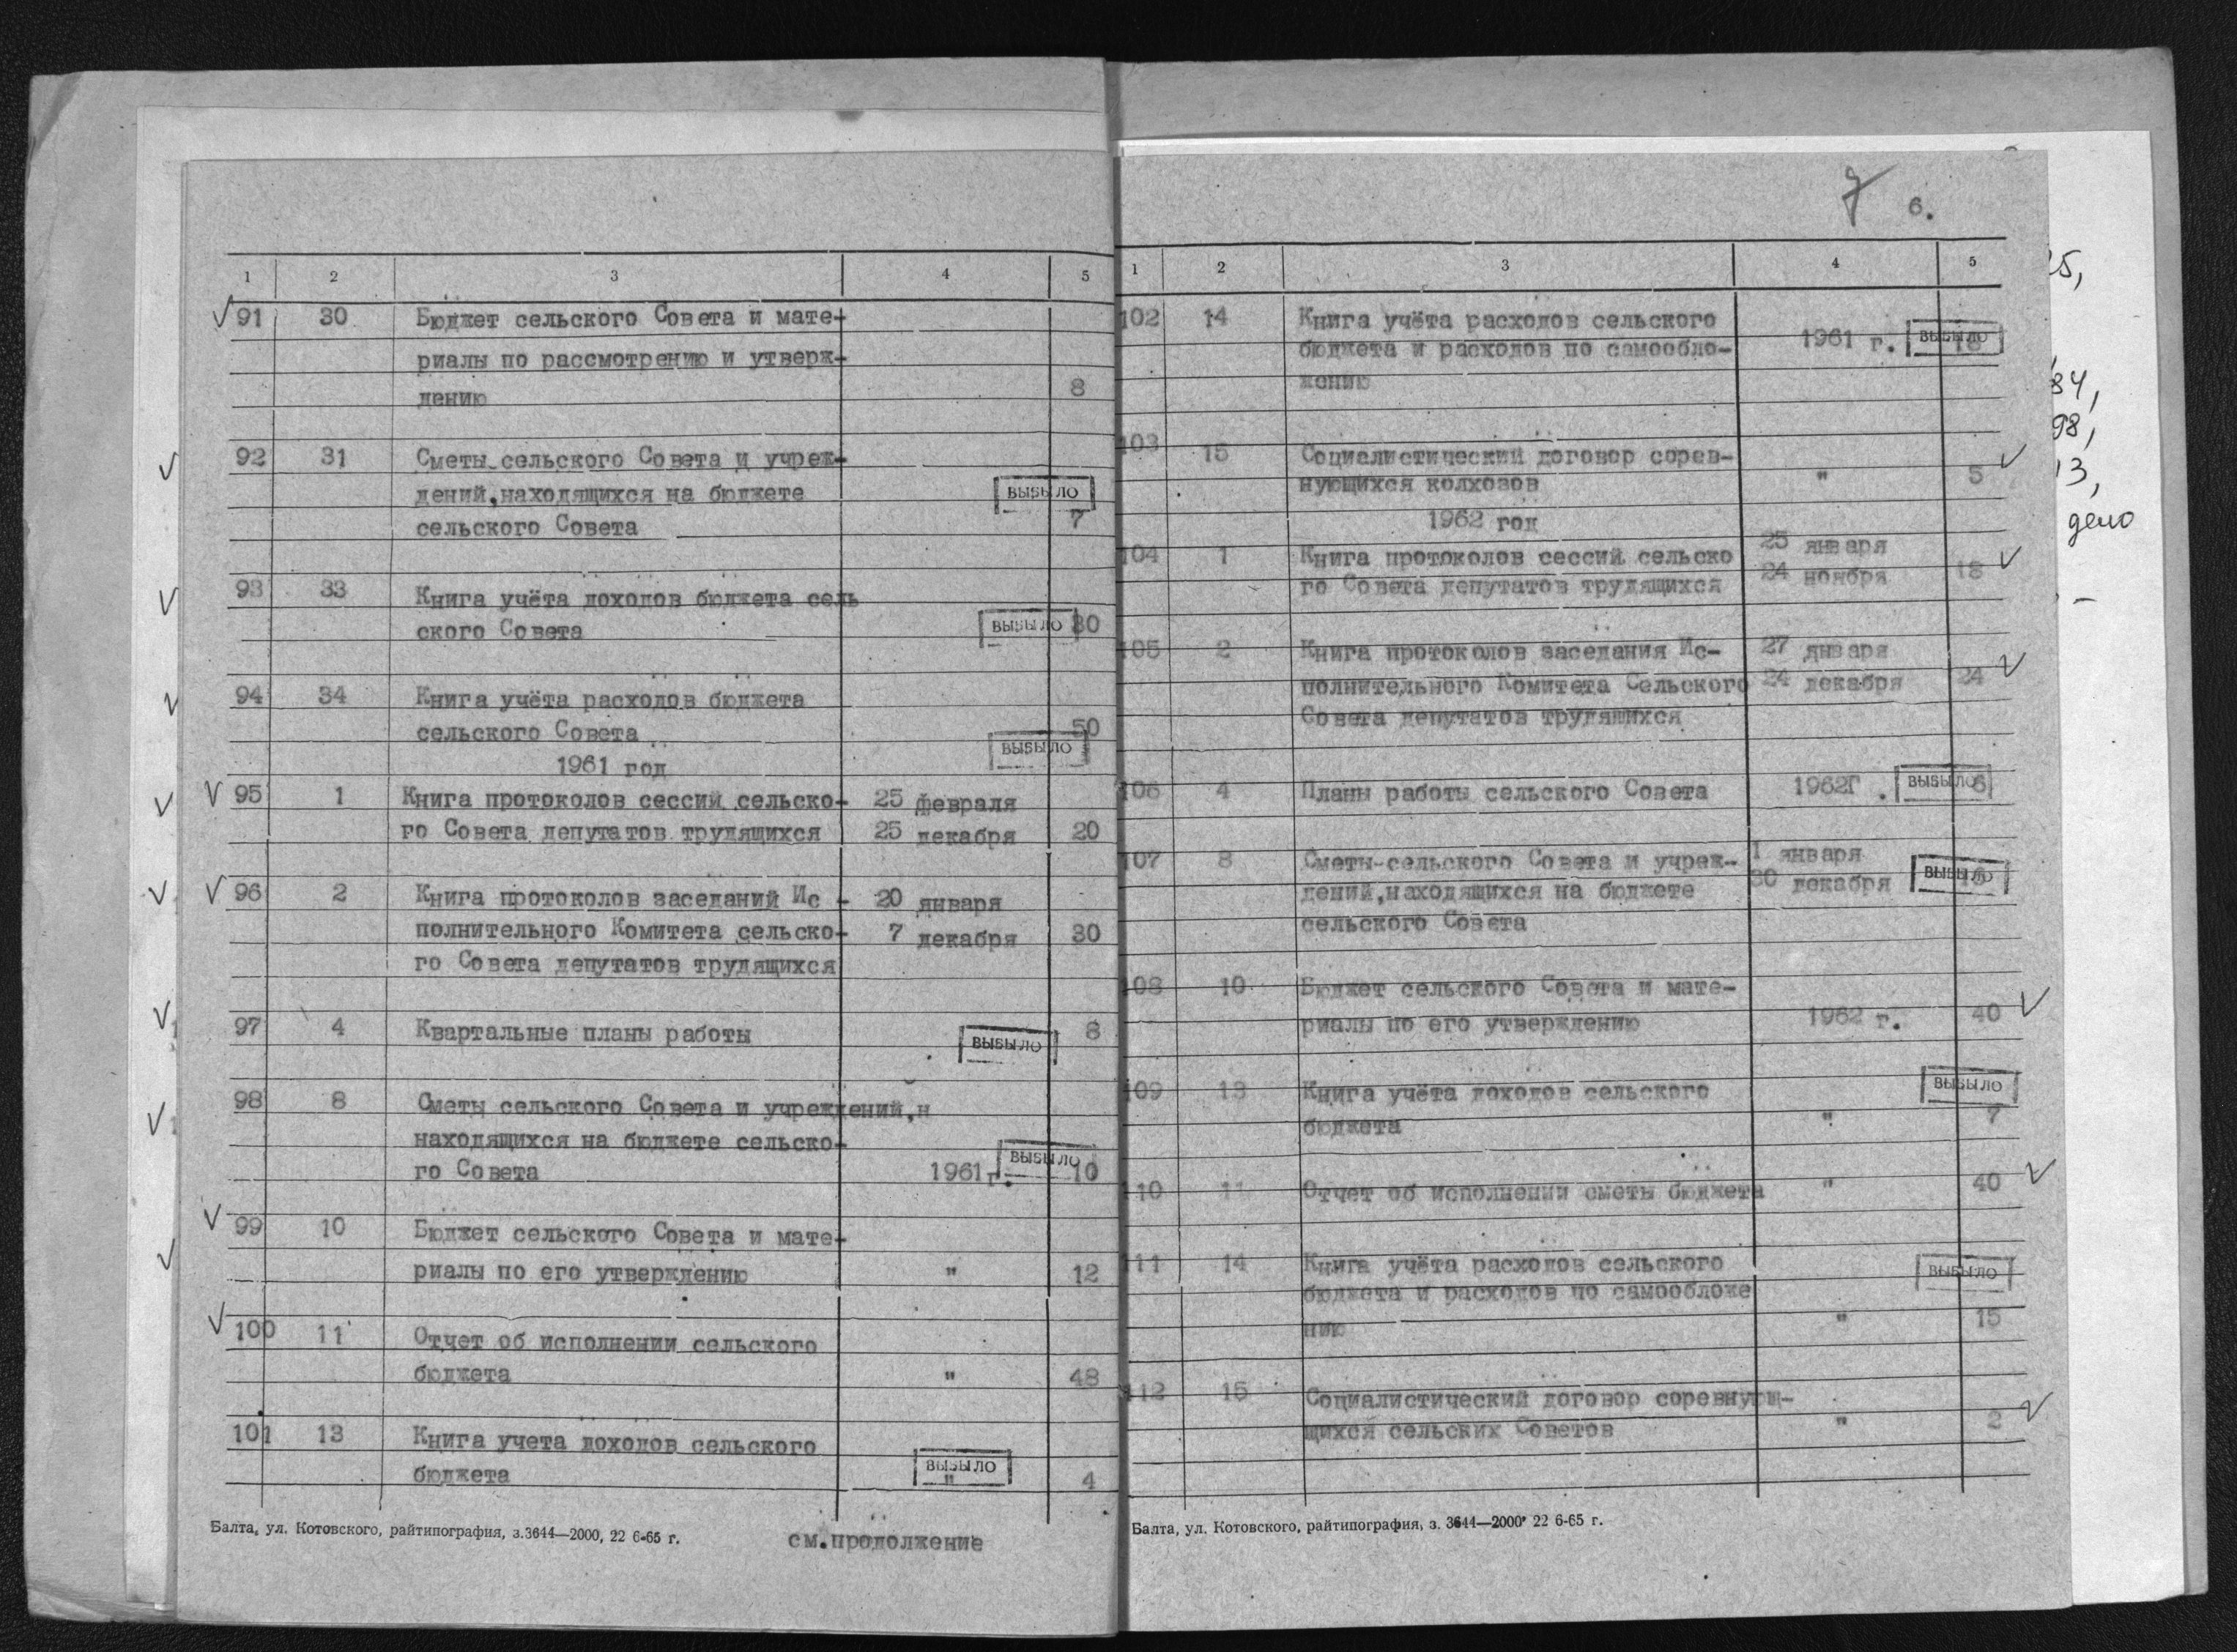 1 2 3 4 5
91 30 Бюджет сельского Совета и мате-
риалы по рассмотрению и утверж-
дению 8
92 31 Сметы сельского Совета и учреж-
дений,находящихся на бюджете ВЫБЫЛО
сельского Совета 7
93 33 Книга учёта доходов бюджета сель
ского Совета ВЫБЫЛО 30
94 34 Книга учёта расходов бюджета
сельского Совета 50
ВЫБЫЛО
1961 год
95 1 Книга протоколов сессий сельско- 25 февраля
го Совета депутатов трудящихся 25 декабря 20
96 2 Книга протоколов заседаний Ис - 20 января
полнительного Комитета сельско- 7 декабря 30
го Совета депутатов трудящихся
97 4 Квартальные планы работы ВЫБЫЛО 8
98 8 Сметы сельского Совета и учреждений,н
находящихся на бюджете сельско-
го Совета 1961г. ВЫБЫЛО 10
99 10 Бюджет сельского Совета и мате-
риалы по его утверждению " 12
100 11 Отчет об исполнении сельского
бюджета " 48
101 13 Книга учета доходов сельского
бюджета ВЫБЫЛО " 4
Балта, ул. Котовского, райтипография, з.3644—2000, 22 6-65 г.
см.продолжение
7 6.
1 2 3 4 5
102 14 Книга учёта расходов сельского
бюджета и расходов по самообло- 1961 г. ВЫБЫЛО
жению
103 15 Социалистический договор сорев-
нующихся колхозов " 5
1962 год
104 1 Книга протоколов сессий сельско 25 января
го Совета депутатов трудящихся 24 ноября 18
105 2 Книга протоколов заседания Ис- 27 января
полнительного Комитета Сельского 24 декабря 24
Совета депутатов трудящихся
106 4 Планы работы сельского Совета 1962Г. ВЫБЫЛО 6
107 8 Сметы-сельского Совета и учреж- 1 января
дений,находящихся на бюджете 30 декабря ВЫБЫЛО
сельского Совета
108 10 Бюджет сельского Совета и мате-
риалы по его утверждению 1962 г. 40
109 13 Книга учёта доходов сельского ВЫБЫЛО
бюджета " 7
110 11 Отчет об исполнении сметы бюджета " 40
111 14 Книга учёта расходов сельского ВЫБЫЛО
бюджета и расходов по самообложе
нию " 15
112 15 Социалистический договор соревнующ-
щихся сельских Советов " 2
Балта, ул. Котовского, райтипография, з. 3644—2000 22 6-65 г.
84,
98,
13,
дело